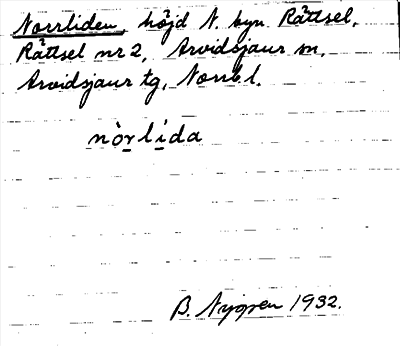 Norrliden, höjd N. byn Rättsel,
Rättsel nr 2, Arvidsjaur sn,
Arvidsjaur tg, Norrb l.
nòrlida
B. Nygren 1932.